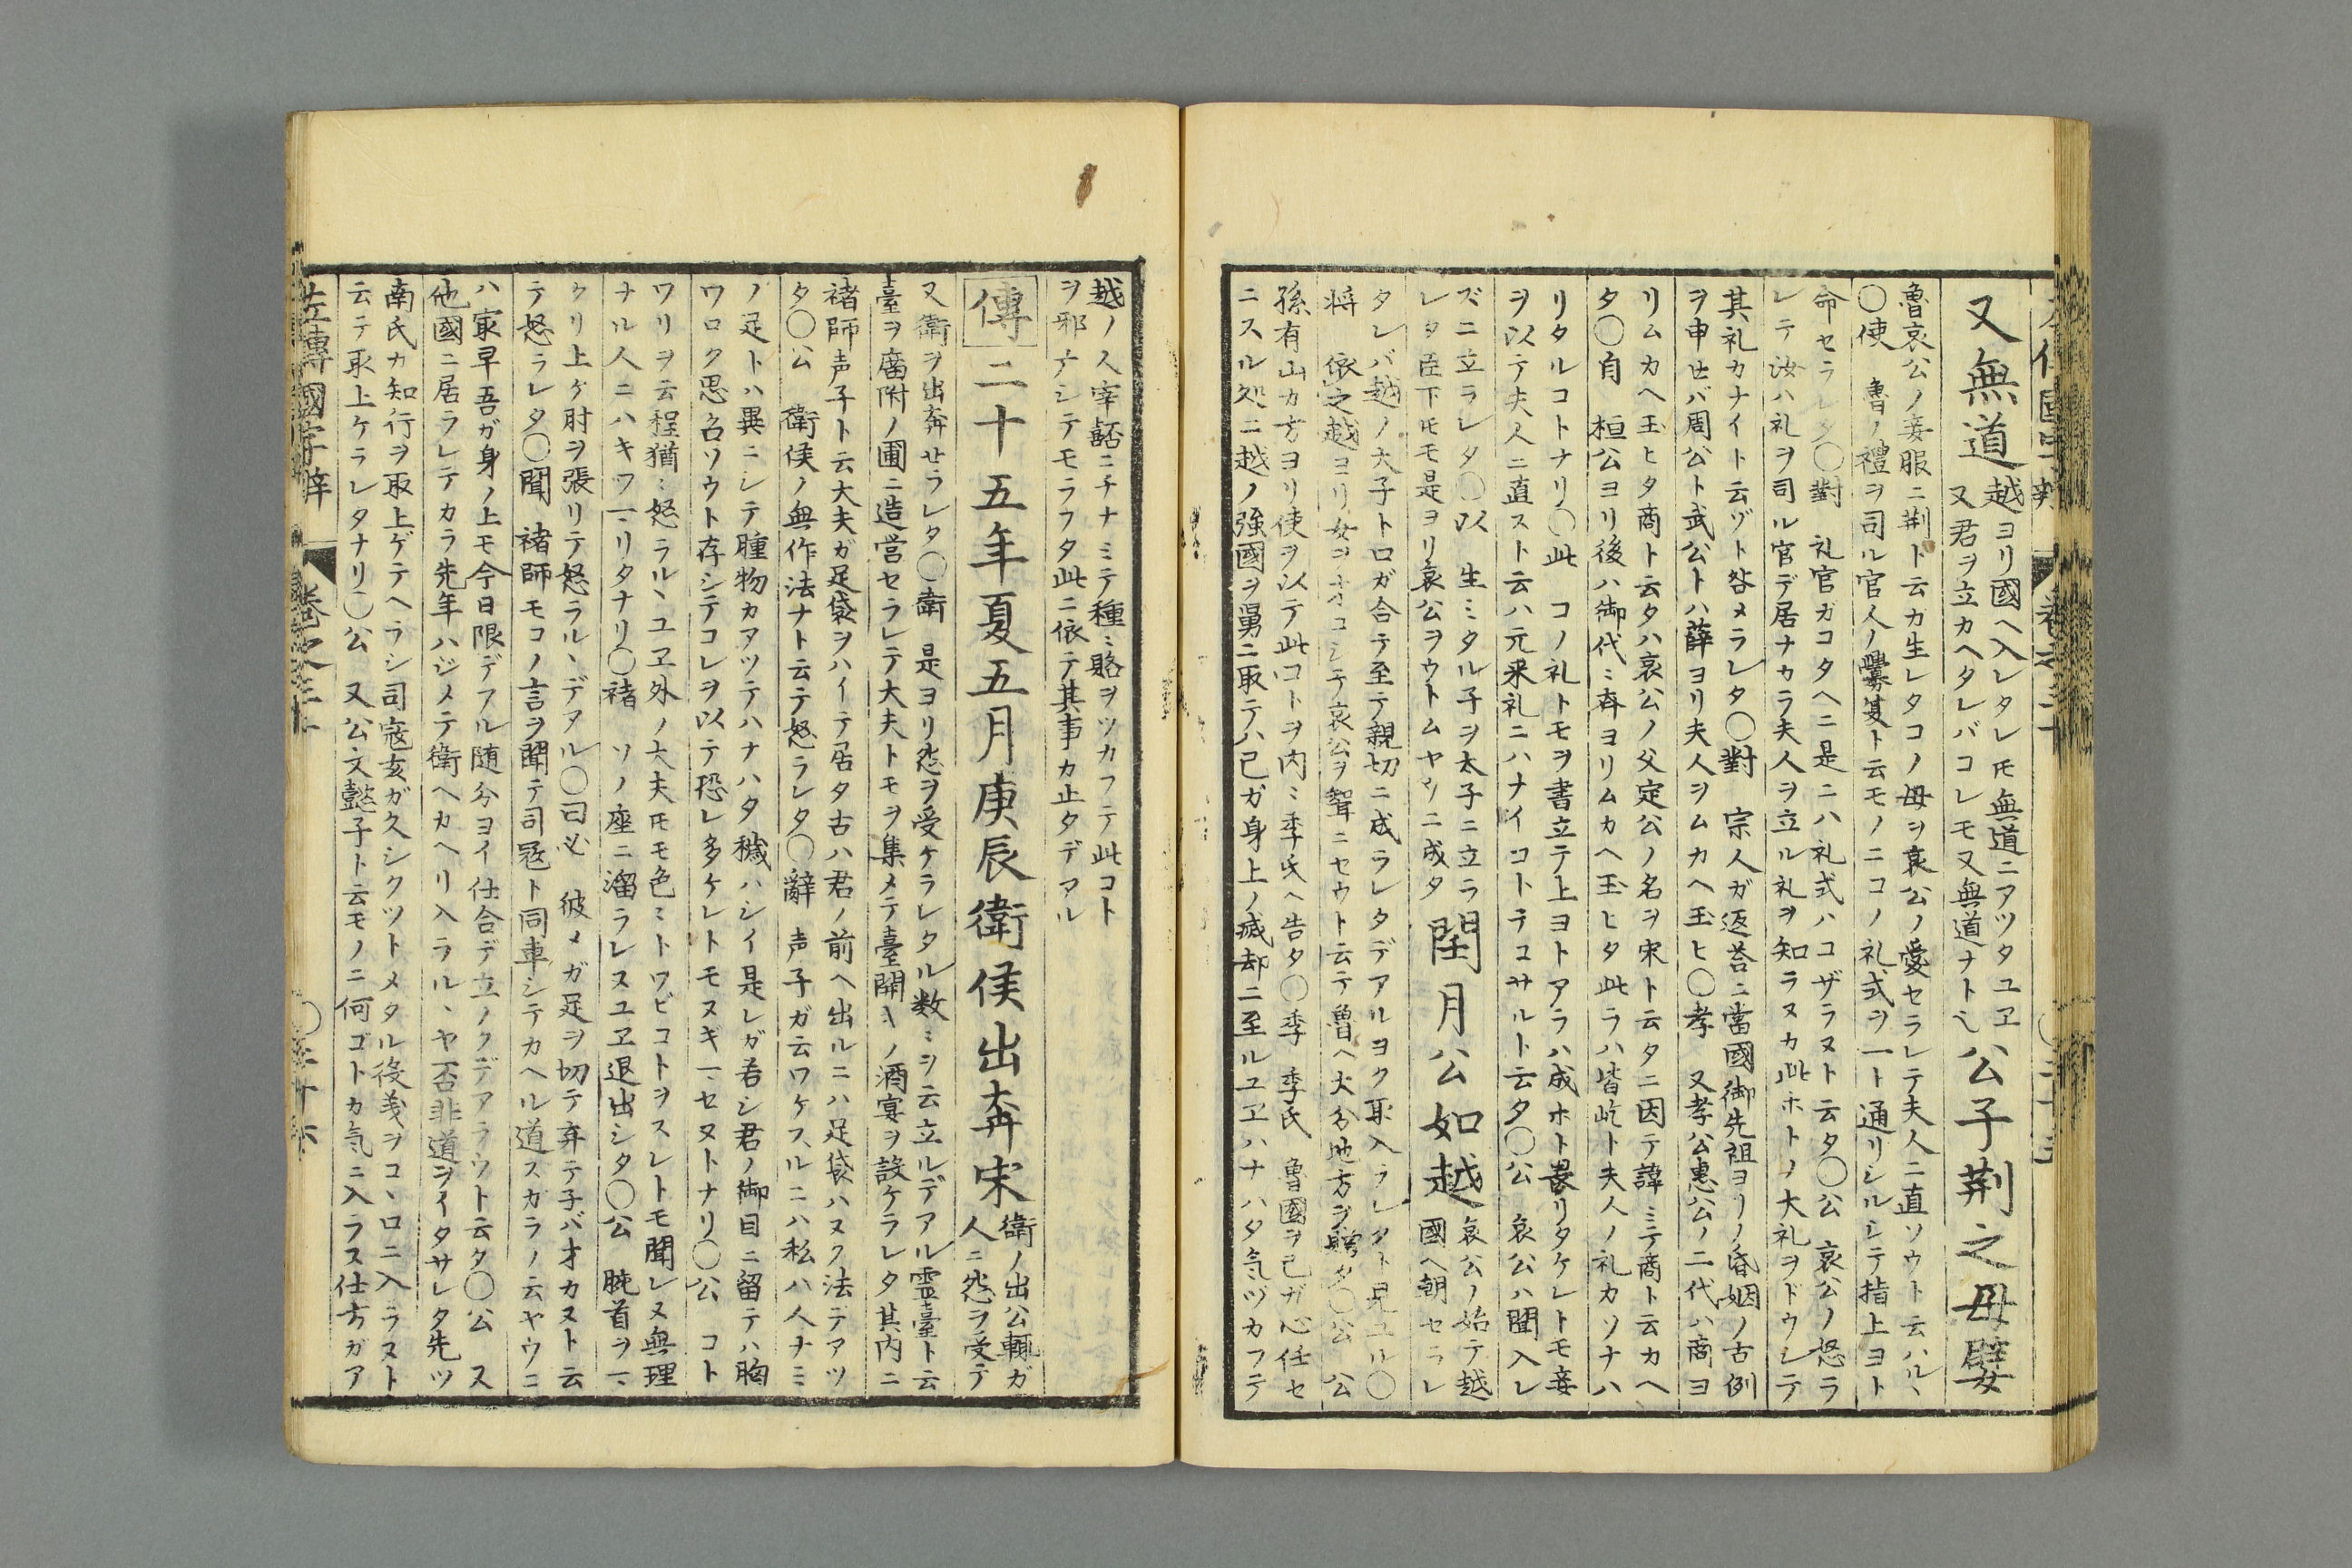 又無道越ヨリ國ヘ入レタレ𪜈無道ニアツタユヱ
又君ヲ立カヘタレバコレモ又無道ナト也公子荆之母嬖
魯哀公ノ妾服ニ荆ト云カ生レタコノ母ヲ哀公ノ愛セラレテ夫人ニ直ソウト云ハルヽ
〇使 魯ノ禮ヲ司ル官人ノ釁夏ト云モノニコノ礼式ヲ一ト通リシルシテ指上ヨト
命セラレタ〇對 礼官ガコタヘニ是ニハ礼式ハコザラヌト云タ〇公 哀公ノ怒ラ
レテ汝ハ礼ヲ司ル官デ居ナカラ夫人ヲ立ル礼ヲ知ラヌカ此ホトノ大礼ヲドウシテ
其礼カナイト云ゾト咎メラレタ〇對 宗人ガ返荅ニ當國御先祖ヨリノ昏姻ノ古例
ヲ申セバ周公ト武公トハ薛ヨリ夫人ヲムカヘ玉ヒ〇孝 又孝公惠公ノ二代ハ商ヨ
リムカヘ玉ヒタ商ト云タハ哀公ノ父定公ノ名ヲ宋ト云タニ因テ諱ミテ商ト云カヘ
タ〇自 桓公ヨリ後ハ御代ミ斉ヨリムカヘ玉ヒタ此ラハ皆屹ト夫人ノ礼カソナハ
リタルコトナリ〇此 コノ礼トモヲ書立テ上ヨトアラハ成ホト畏リタケレトモ妾
ヲ以テ夫人ニ直スト云ハ元来礼ニハナイコトテコサルト云タ〇公 哀公ハ聞入レ
ズニ立ラレタ〇以 生ミタル子ヲ太子ニ立ラ
レタ臣下𪜈モ是ヨリ哀公ヲウトムヤウニ成タ閏月公如越哀公ノ始テ越
國ヘ朝セラレ
タレバ越ノ大子トロガ合テ至テ親切ニ成ラレタデアルヨク取入ラレタト見ユル〇
将 依之越ヨリ女ヲヨコシテ哀公ヲ聟ニセウト云テ魯ヘ大分地方ヲ贈タ〇公 公
孫有山カ方ヨリ使ヲ以テ此コトヲ内ミ季氏ヘ告タ〇季 季氏 魯國ヲ己ガ心任セ
ニスル処ニ越ノ強國ヲ舅ニ取テハ己ガ身上ノ滅却ニ至ルユヱハナハタ気ヅカフテ
越ノ人宰嚭ニチナミテ種ミ賂ヲツカフテ此コト
ヲ邪广シテモラフタ此ニ依テ其事カ止タデアル
傳二十五年夏五月庚辰衛侯出奔宋衛ノ出公輒ガ
人ニ怨ヲ受テ
又衛ヲ出奔セラレタ〇衛 是ヨリ怨ヲ受ケラレタル数ミヲ云立ルデアル靈臺ト云
臺ヲ腐附ノ圃ニ造営セラレテ大夫トモヲ集メテ臺開キノ酒宴ヲ設ケラレタ其内ニ
褚師声子ト云大夫ガ足袋ヲハイテ居タ古ハ君ノ前ヘ出ルニハ足袋ハヌク法デアツ
タ〇公 衛侯ノ無作法ナト云テ怒ラレタ〇辭 声子ガ云ワケスルニハ私ハ人ナミ
ノ足トハ異ニシテ腫物カアツテハナハタ穢ハシイ是レガ若シ君ノ御目ニ留テハ胸
ワロク思召ソウト存シテコレヲ以テ恐レ多ケレトモヌギ一ヽセヌトナリ〇公 コト
ワリヲ云程猶ミ怒ラルヽユヱ外ノ大夫𪜈モ色ミトワビコトヲスレトモ聞レヌ無理
ナル人ニハキワ一ヽリタナリ〇褚 ソノ座ニ溜ラレスユヱ退出シタ〇公 腕首ヲ一ヽ
クリ上ゲ肘ヲ張リテ怒ラルヽデアル〇曰必 彼メガ足ヲ切テ弃テ子バオカヌト云
テ怒ラレタ〇聞 褚師モコノ言ヲ聞テ司冦ト同車シテカヘル道スガラノ云ヤウニ
ハ㝡早吾ガ身ノ上モ今日限デアル随分ヨイ仕合デ立ノクデアラウト云タ〇公 ス
他國ニ居ラレテカラ先年ハジメテ衛ヘカヘリ入ラルヽヤ否非道ヲイタサレタ先ツ
南氏カ知行ヲ取上ゲテヘラシ司寇亥ガ久シクツトメタル役義ヲコヽロニ入ラヌト
云テ取上ケラレタナリ〇公 又公文懿子ト云モノニ何ゴトカ気ニ入ラス仕方ガア
左傳國字辯 巻之三十 〇二十六